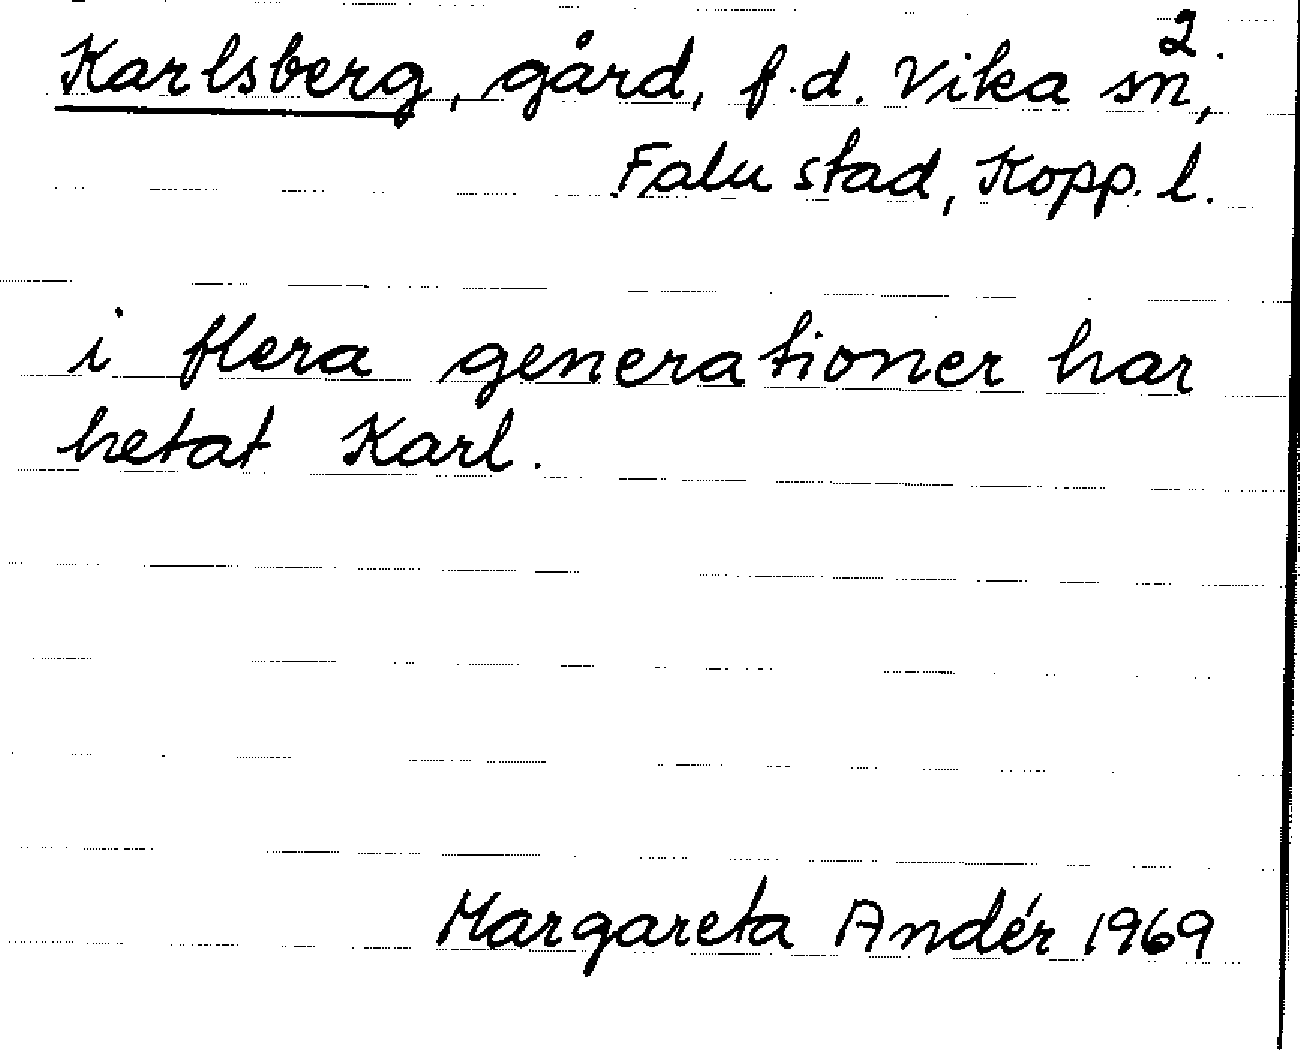 2.
Karlsberg, gård, f.d. Vika sn,
Falu stad, Kopp. l.
i flera generationer har
hetat Karl.
Margareta Andér 1969